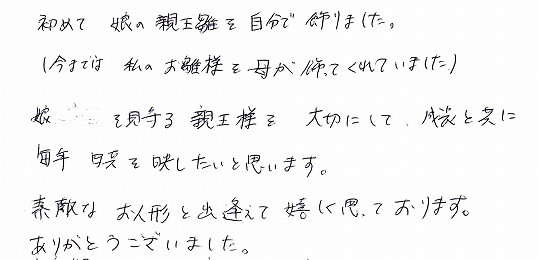 初めて 娘の親王雛を自分で飾りました。
(今までは 私のお雛様を母が飾ってくれていました)
娘 を見守る 親王様を 大切にして、成長と共に
毎年 写真を映したいと思います。
素敵な お人形と出逢えて 嬉しく思っております。
ありがとうございました。